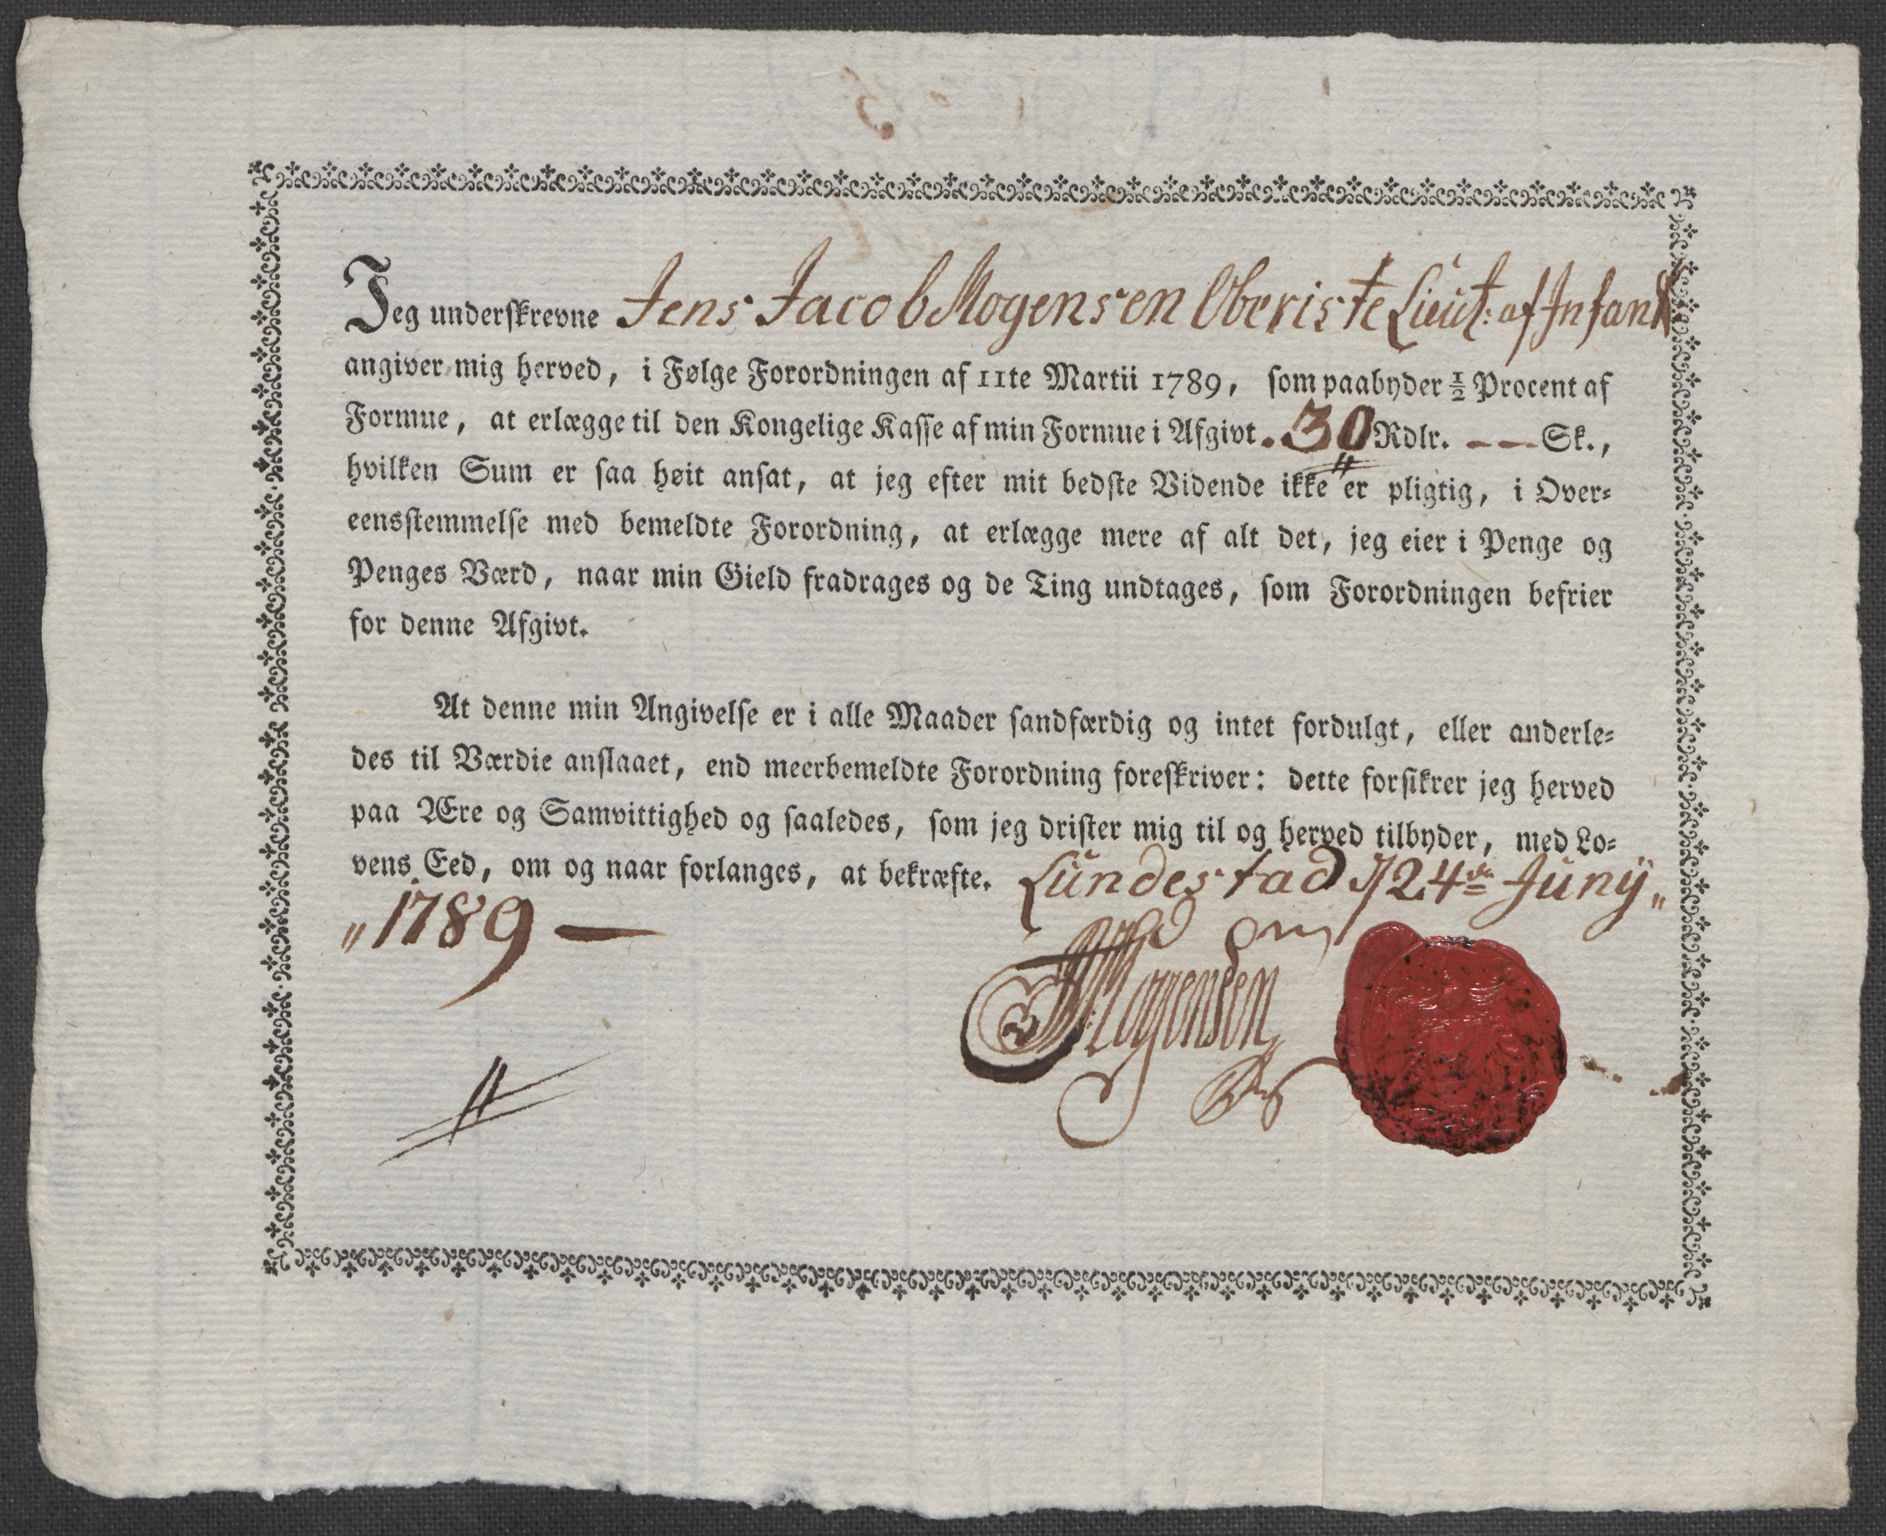 Jeg underskrevne Jens Jacob Mogensen Oberiste Lieut: af Infant
angiver mig herved, i Følge Forordningen af 11te Martii 1789, som paabyder ½ Procent af
Formue, at erlægge til den Kongelige Kasse af min Formue i Afgivt. 30 Rdlr. — — Sk.,
hvilken Sum er saa høit ansat, at jeg efter mit bedste Vidende ikke er pligtig, i Over-
eensstemmelse med bemeldte Forordning, at erlægge mere af alt det, jeg eier i Penge og
Penges Værd, naar min Gield fradrages og de Ting undtages, som Forordningen befrier
for denne Afgivt.
At denne min Angivelse er i alle Maader sandfærdig og intet fordulgt, eller anderle-
des til Værdie anslaaet, end meerbemeldte Forordning foreskriver: dette forsikrer jeg herved
paa Ære og Samvittighed og saaledes, som jeg drister mig til og herved tilbyder, med Lo-
vens Eed, om og naar forlanges, at bekræfte. Lundestad 24de Junÿ
1789 —
Mogensen